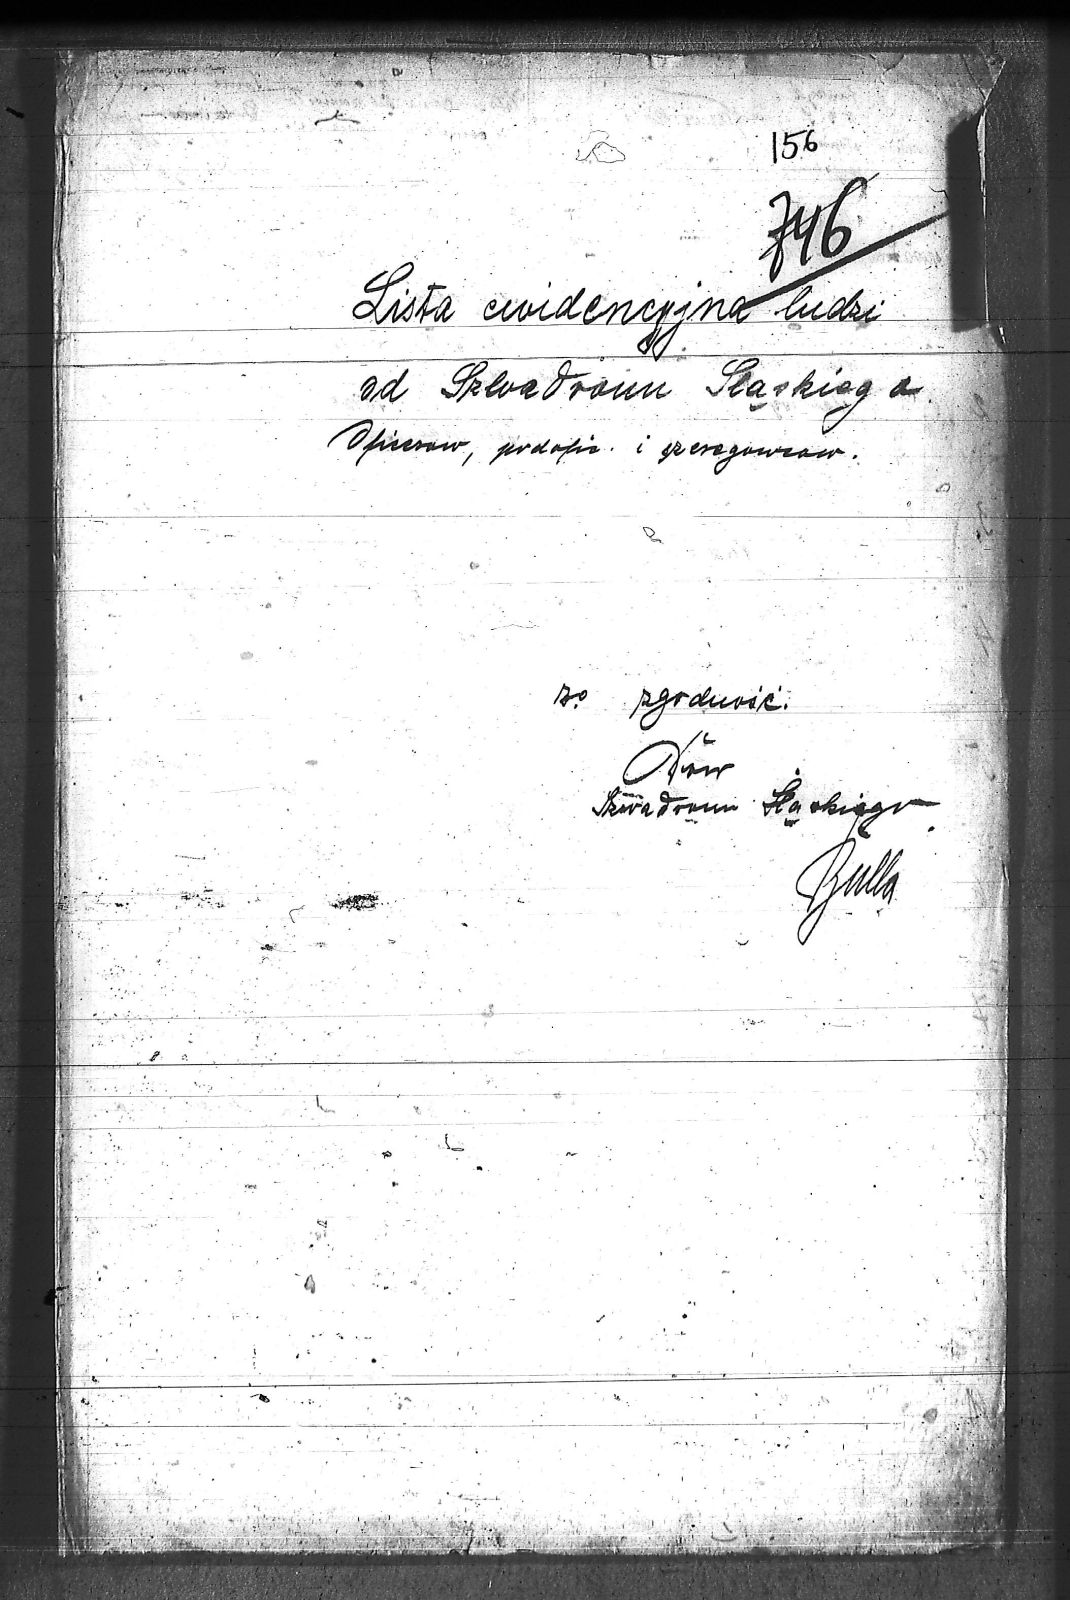 156
746
Lista ewidencyjna ludzi
od Szwadronu Śląskiego
Oficerow, podofic. i szeregowcow.
za zgodność.
Dow
Szwadronu Śląskiego
Bulla